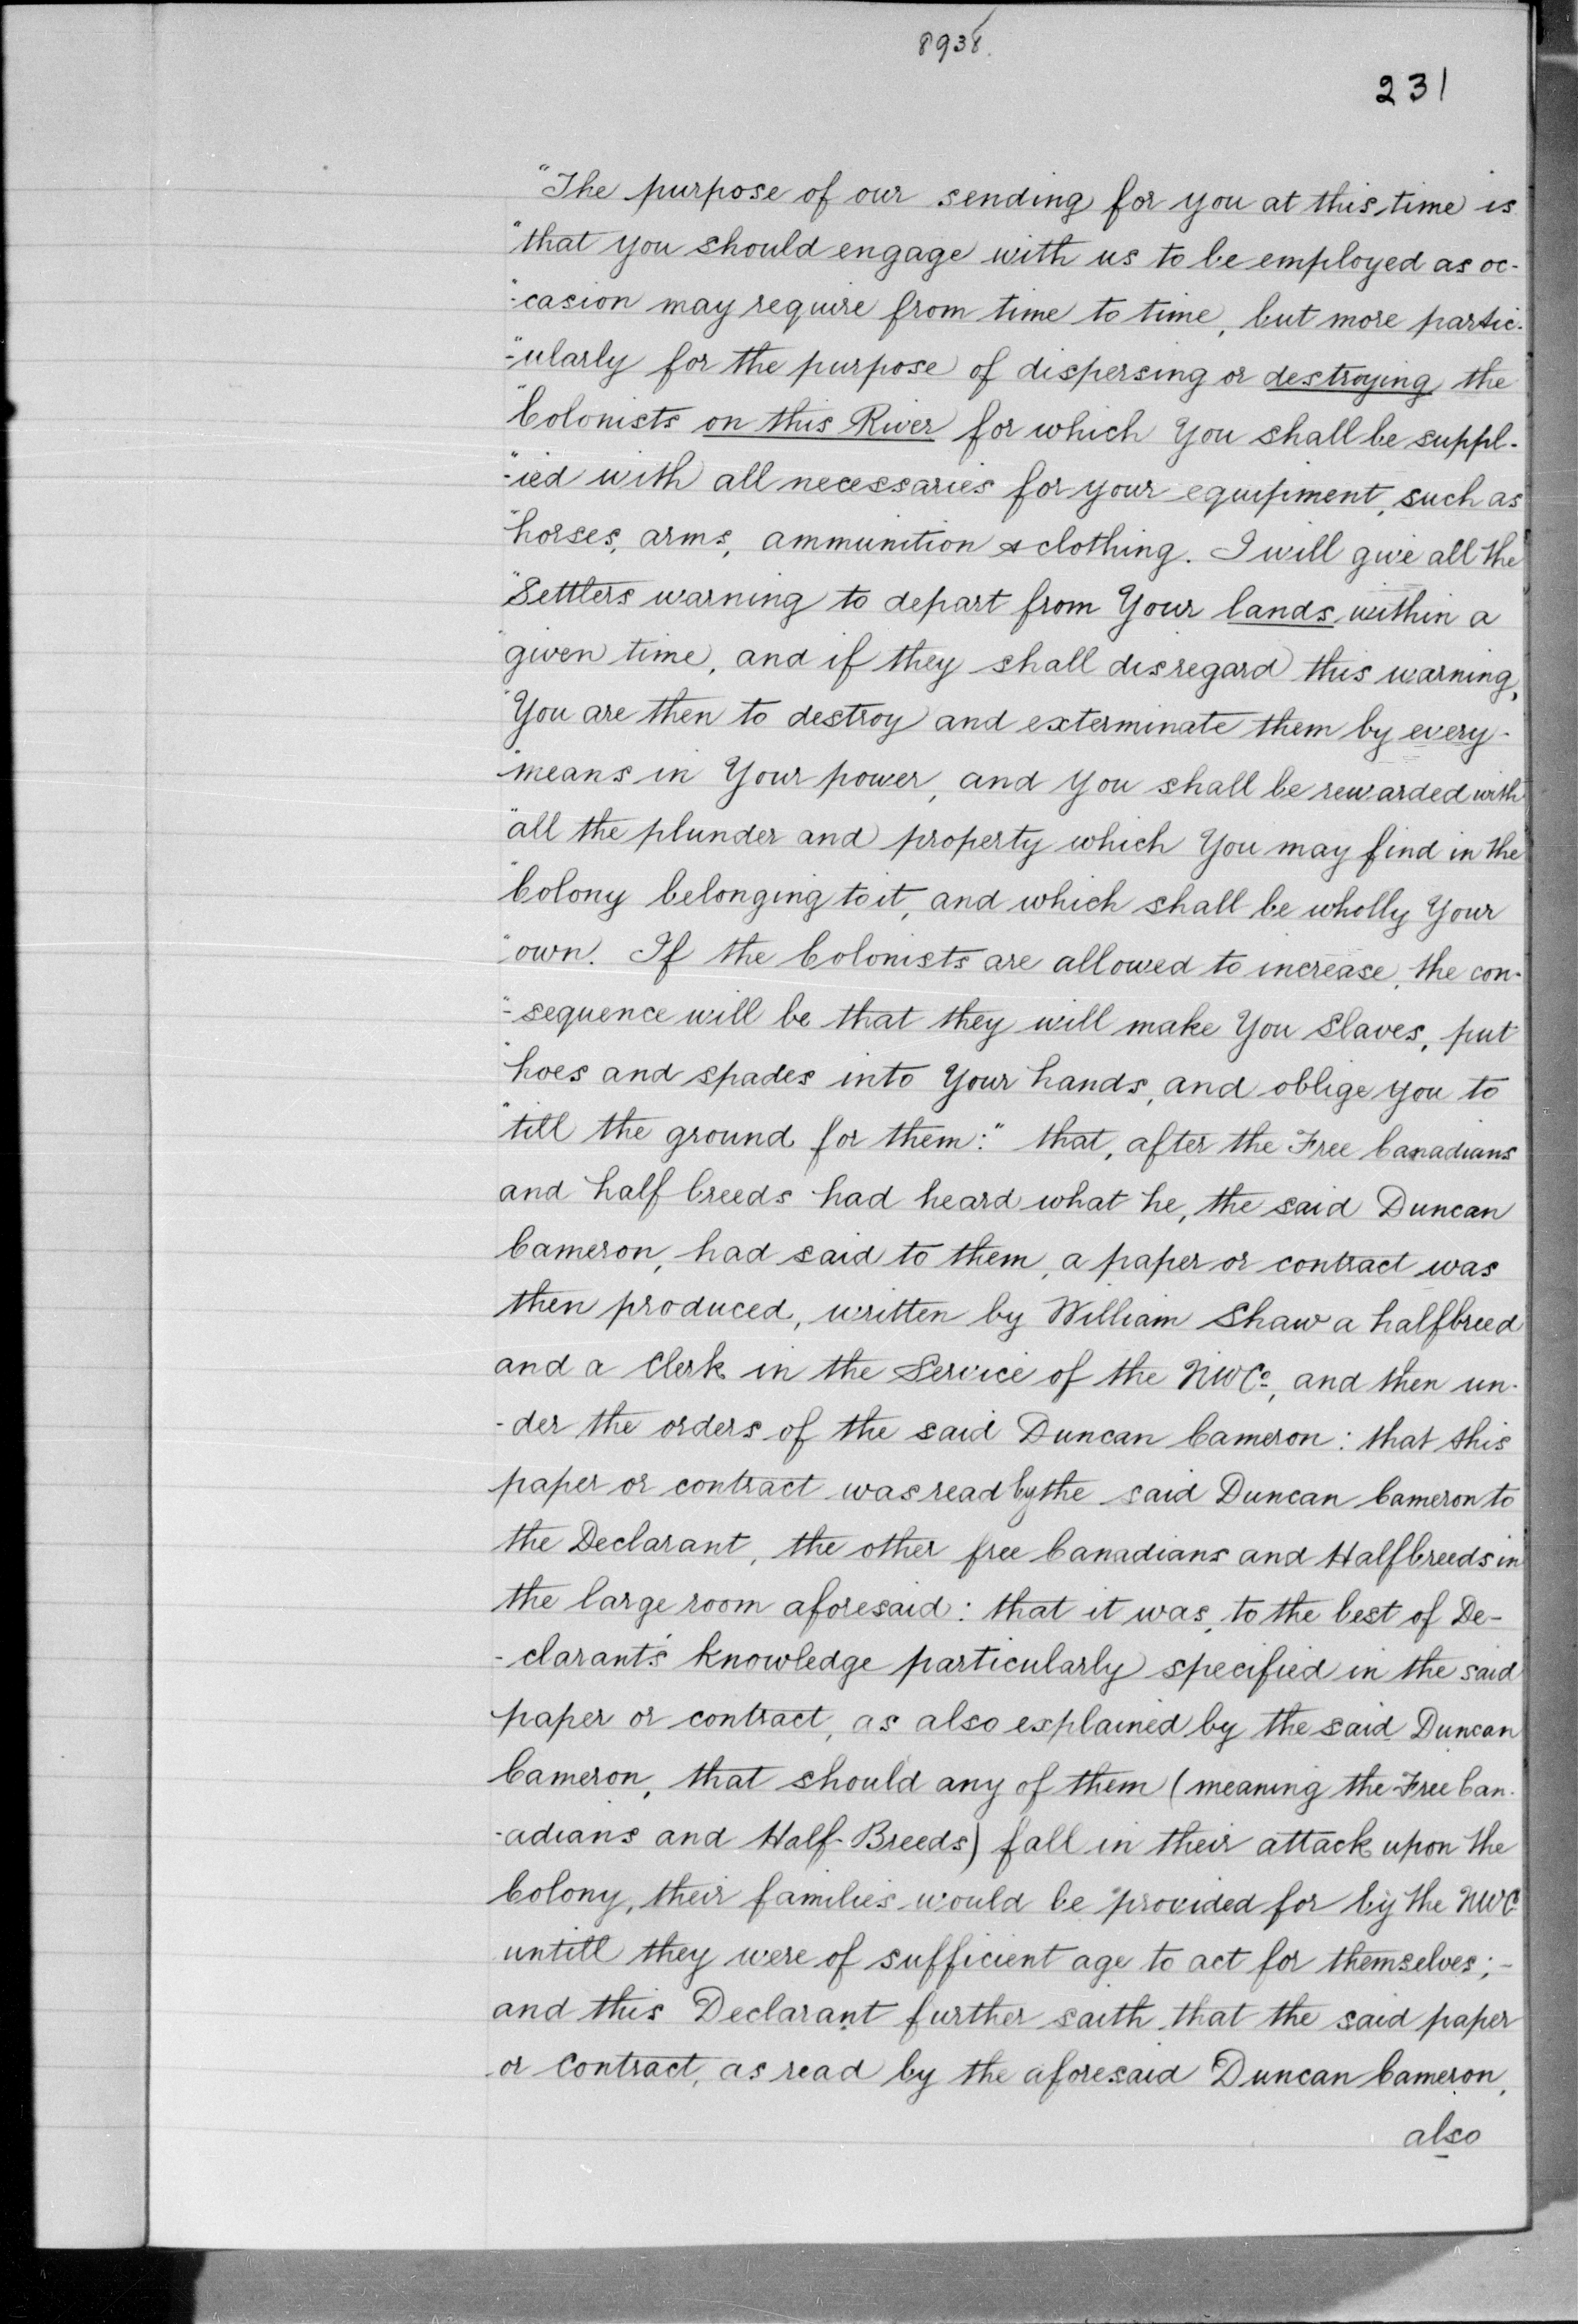 8938.
231
"The purpose of our sending for you at this time is
"that you should engage with us to be employed as oc-
"-casion may require from time to time, but more partic-
"-ularly for the purpose of dispersing or destroying the
"Colonists on this River for which You shall be suppl-
"-ied with all necessaries for your equipment, such as
"horses, arms, ammunition & clothing. I will give all the
"Settlers warning to depart from Your lands within a
"given time, and if they shall disregard this warning,
"You are then to destroy and exterminate them by every-
"means in Your power, and you shall be rewarded with
"all the plunder and property which You may find in the
"Colony belonging to it, and which shall be wholly Your
"own. If the Colonists are allowed to increase, the con-
"-sequence will be that they will make You Slaves, put
"hoes and spades into Your hands, and oblige you to
"till the ground for them:" that, after the Free Canadians
and half breeds had heard what he, the said Duncan
Cameron, had said to them, a paper or contract was
then produced, written by William Shaw a halfbreed
and a Clerk in the Service of the NWCo, and then un-
-der the orders of the said Duncan Cameron: that this
paper or contract was read by the said Duncan Cameron to
the Declarant, the other free Canadians and Halfbreeds in
the large room aforesaid: that it was, to the best of De-
-clarant's knowledge particularly specified in the said
paper or contract, as also explained by the said Duncan
Cameron, that should any of them (meaning the Free Can-
-adians and Half-Breeds) fall in their attack upon the
Colony, their families would be provided for by the NWC
untill they were of sufficient age to act for themselves;-
and this Declarant further saith that the said paper
or contract, as read by the aforesaid Duncan Cameron,
also